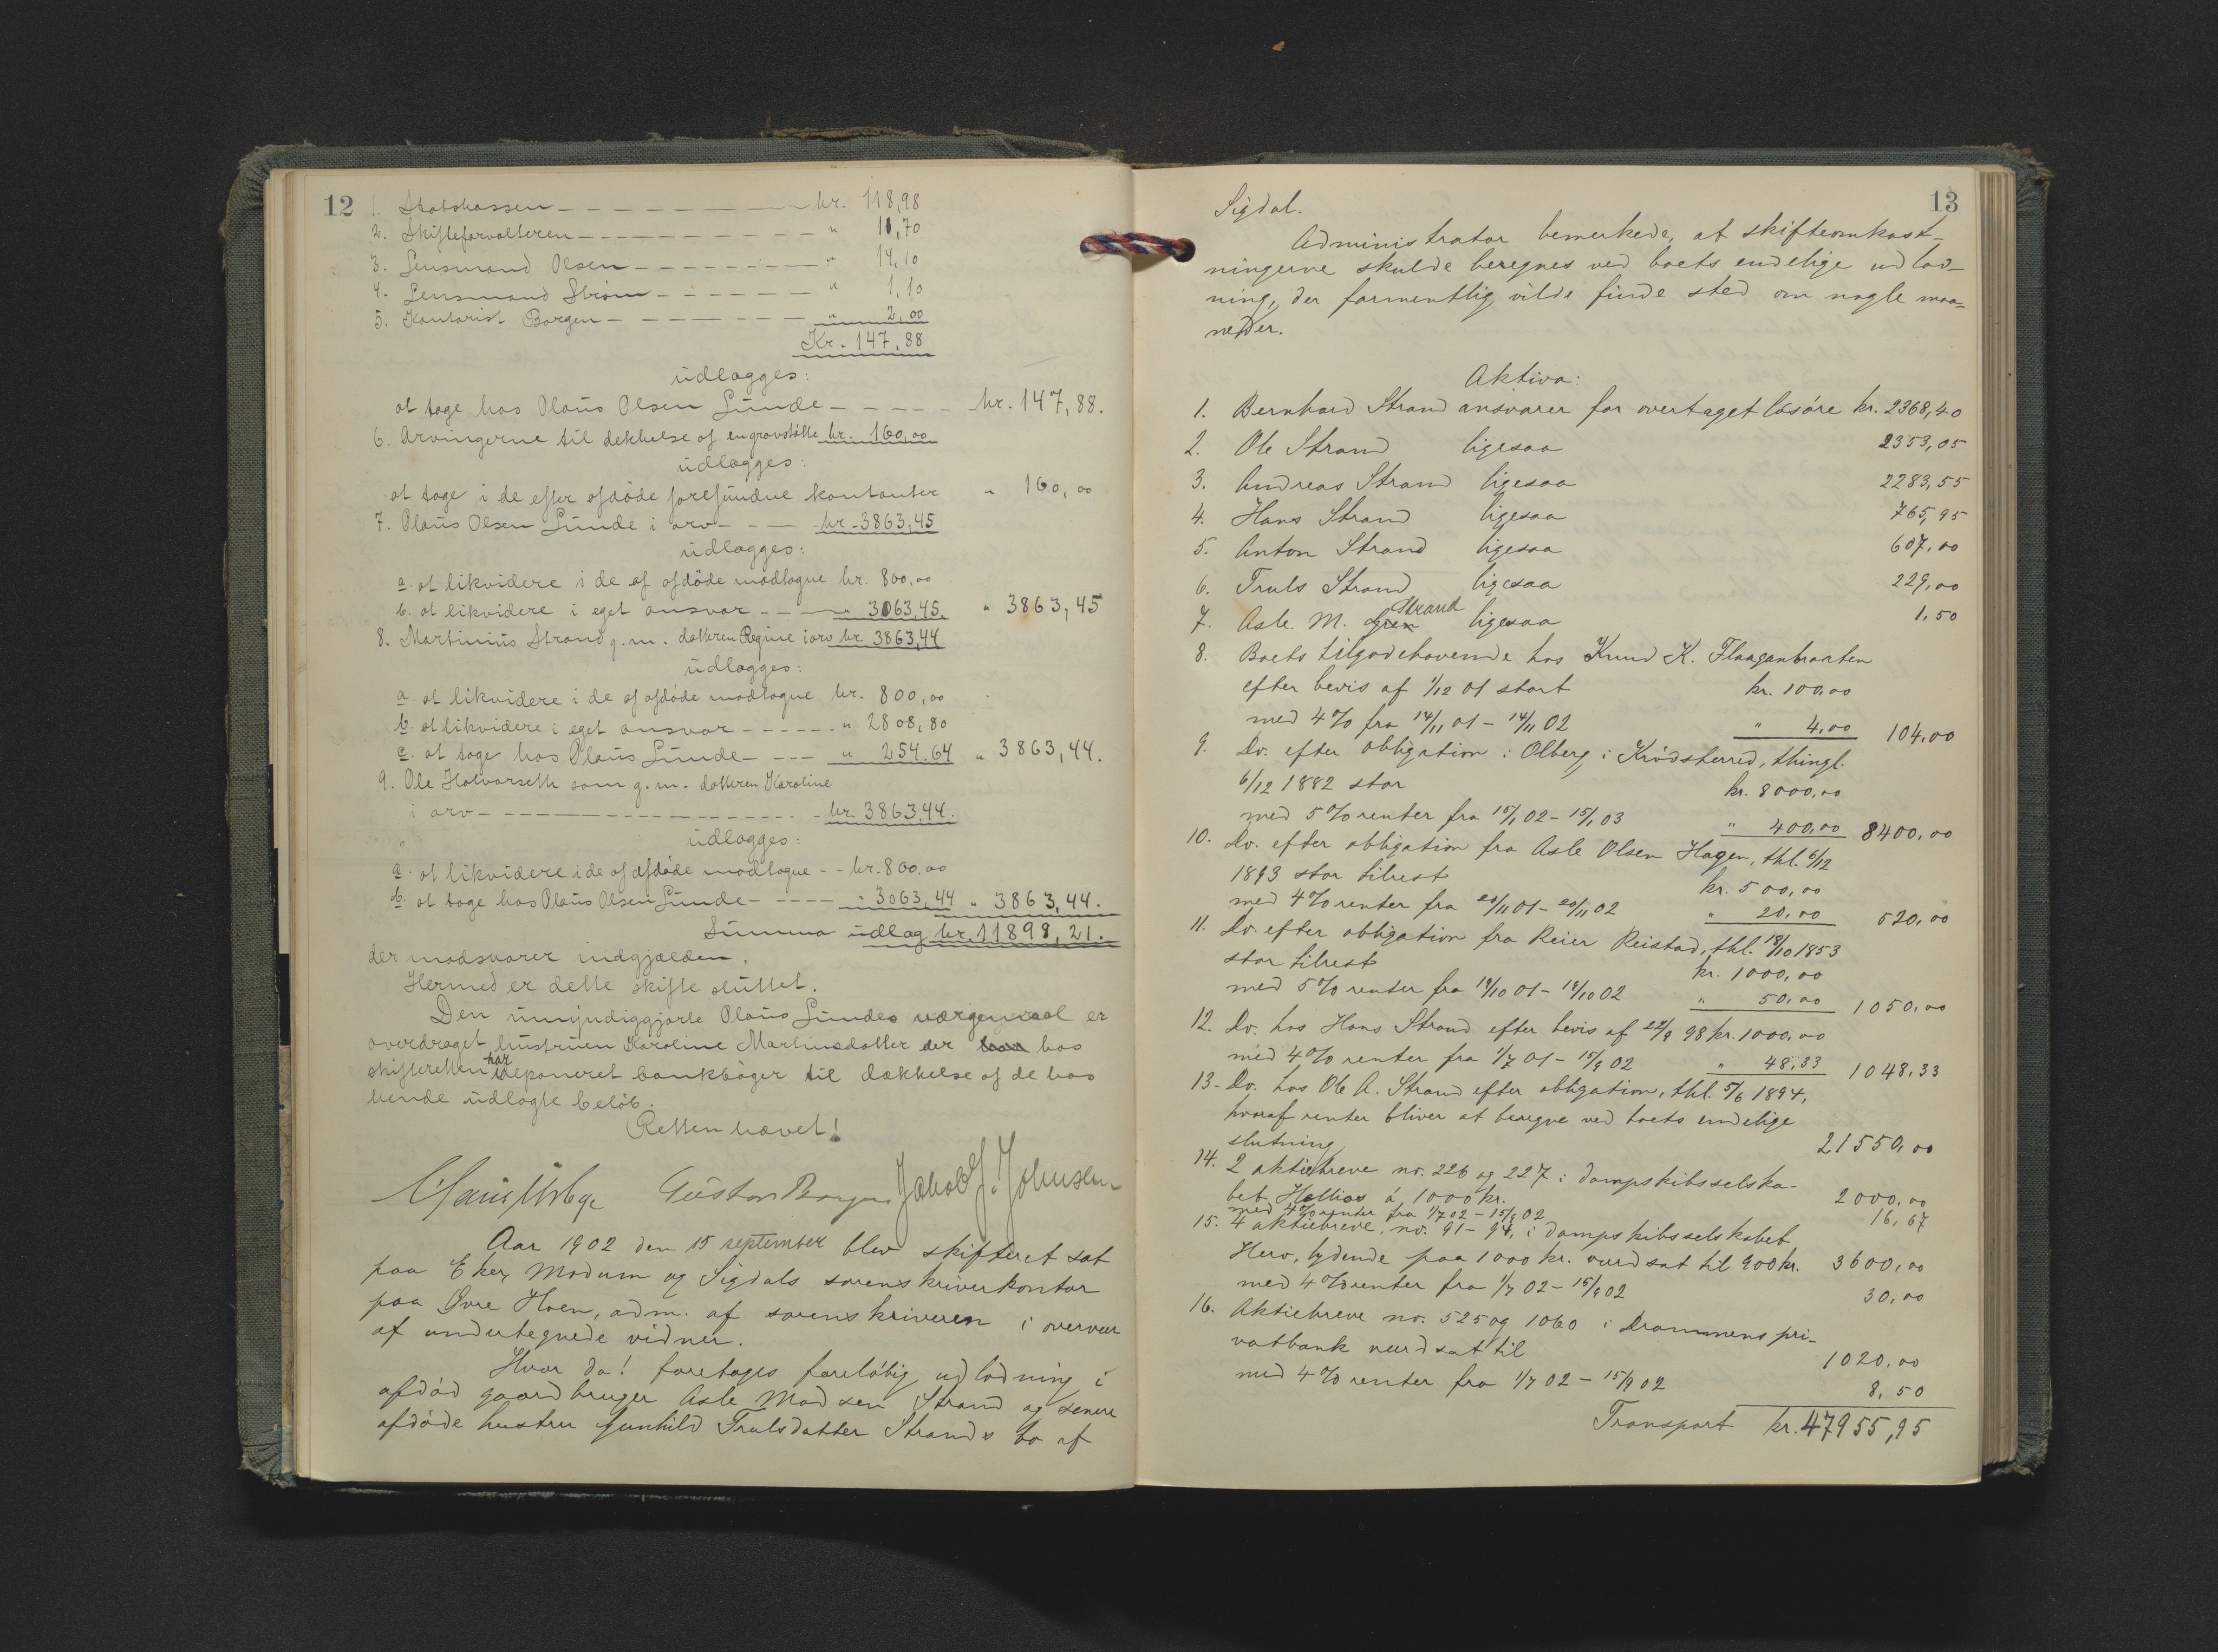 12
1. Statskassen — kr. 118,98
2. Skifteforvalteren — " 11,70
3. Lensmand Olsen — " 14,10
4. Lensmand Strøm — " 1,10
5. Kontorist Borgen — " 2,00
Kr. 147,88
udlægges:
at tage hos Olaüs Olsen Lünde — kr. 147,88.
6. Arvingerne til dekkelse af en gravstøtte kr. 160,00
udlægges:
at tage i de efter afdöde forefündne kontanter " 160,00
7. Olaüs Olsen Lünde i arv — kr. 3863,45
udlægges:
a. at likvidere i de af afdöde modtagne kr. 800,00
b. at likvidere i eget ansvar — " 3063,45. " 3863,45
8. Martiniüs Strand g.m. datteren Regine i arv kr. 3863,44
udlægges:
a. at likvidere i de af afdöde modtagne kr. 800,00
b. at likvidere i eget ansvar — " 2808,80
c. at tage hos Olaüs Lünde — " 254.64 " 3863,44.
9. Ole Halvorseth som g.m. datteren Karoline
i arv — kr. 3863,44.
udlægges:
a. at likvidere i de af afdøde modtagne - - kr. 800,00
b. at tage hos Olaüs Olsen Lünde — " 3063,44 " 3863,44.
Sümma üdlag kr. 11898,21.
der modsvarer indgjælden.
Hermed er dette skifte slüttet.
Den ümyndiggjorte Olaüs Lündes værgemaal er
overdraget hüstrüen Karoline Martinsdatter der hos
skifteretten har deponeret bankbøger til dækkelse af de hos
hende üdlagte beløb.
Retten hævet!
Güstav Borgen Jakob J. Johnsen
Aar 1902 den 15 september blev skifteret sat
paa Eker, Modum og Sigdals sorenskriverkontor
paa Øvre Hoen, adm. af sorenskriveren i overvær
af undertegnede vidner.
Hvor da! foretoges foreløbig udlodning i
afdød gaardbruger Asle Madsen Strand og senere
afdøde hustru Gunhild Trulsdatter Strands bo af
13
Sigdal.
Administrator bemerkede, at skifteomkost-
ningerne skulde beregnes ved boets endelige udlod-
ning, der formentlig vilde finde sted om nogle maa-
neder.
Aktiva:
1. Bernhard Strand ansvarer for overtaget løsøre kr. 2368,40
2. Ole Strand ligesaa 2353,05
3. Andreas Strand ligesaa 2283,55
4. Hans Strand ligesaa 765,95
5. Anton Strand ligesaa 607,00
6. Truls Strand ligesaa 229,00
7. Asle M. Strand ligesaa 1,50
8. Boets tilgodehavende hos Knud K. Flaaganbraaten
efter bevis af 1/12 01 stort kr. 100,00
med 4% fra 14/11 01 - 14/11 02 " 4,00 104,00
9. Do. efter obligation i Olberg i Krødsherred, thingl.
6/12 1882 stor kr. 8000,00
med 5% renter fra 15/1 02 - 15/1 03 " 400,00 8400,00
10. Do. efter obligation fra Asle Olsen Hagen, thl. 6/12
1893 stor tilrest kr. 500,00
med 4% renter fra 20/11 01 - 20/11 02 " 20,00 520,00
11. Do. efter obligation fra Reier Reistad, thl. 18/10 1853
stor tilrest kr. 1000,00
med 5% renter fra 19/10 01 - 19/10 02 " 50,00 1050,00
12. Do. hos Hans Strand efter bevis af 22/9 98 kr. 1000,00
med 4% renter fra 1/7 01 - 15/9 02 " 48,33 1048,33
13. Do. hos Ole A. Strand efter obligation, thl. 5/6 1894,
hvoraf renter bliver at beregne ved boets endelige
slutning 21550,00
14. 2 aktiebreve no. 226 og 227 i dampskibsselska-
bet Hellios á 1000 kr. 2000,00
med 4% renter fra 1/7 02 - 15/9 02 16,67
15. 4 aktiebreve, no. 91 - 94, i dampskibsselskabet
Hero, lydende paa 1000 kr. vurdsat til 900 kr. 3600,00
med 4% renter fra 1/7 02 - 15/9 02 30,00
16. Aktiebreve no. 525 og 1060 i Drammens pri-
vatbank vurdsat til 1020,00
med 4% renter fra 1/7 02 - 15/9 02 8,50
Transport kr. 47955,95